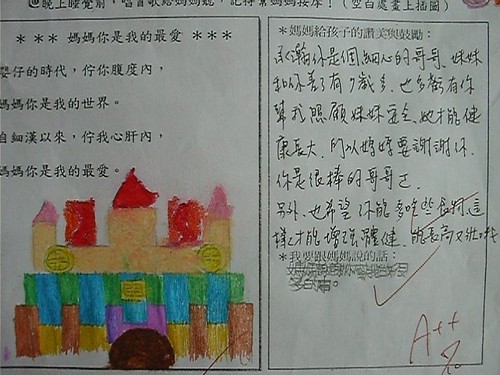 晚上睡覺前，唱首歌給媽媽聽，記得幫媽媽按摩！（空白處畫上插圖）
＊＊＊ 媽媽你是我的最愛 ＊＊＊
嬰仔的時代，佇你腹肚內，
媽媽你是我的世界。
自細漢以來，佇我心肝內，
媽媽你是我的最愛。
＊媽媽給孩子的讚美與鼓勵：
承瀚你是個細心的哥哥，妹妹
和你差了有7歲多，也多虧有你
幫我照顧妹妹安全，她才能健
康長大，所以媽媽要謝謝你，
你是很棒的哥哥
另外，也希望你能多吃些食物，這
樣才能增強體健，能長高又壯
＊我要跟媽媽說的話：
A++